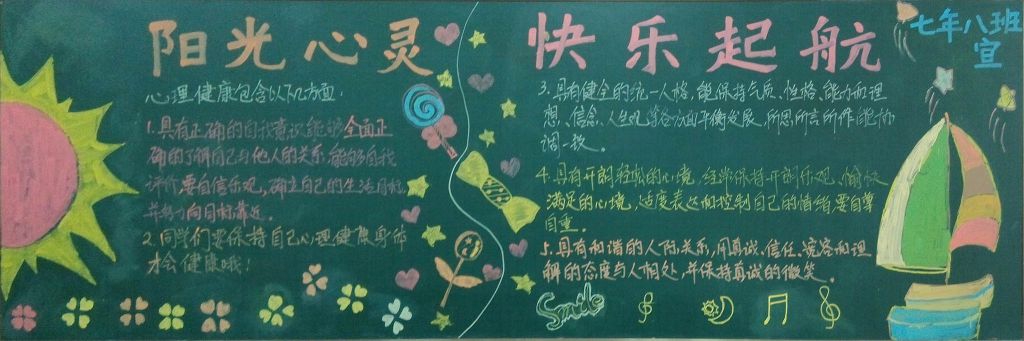 阳光心灵
快乐起航
七年八班
宣
心理健康包含以下几方面:
1.具有正确的自我意识能够全面正
确的了解自己与他人的关系,能够自我
评价,要自信乐观,确立自己的生活目标
并努力向目标靠近。
2.同学们要保持自己心理健康身体
才会健康哦!
3.具有健全的统一人格,能保持气质、性格、能力和理
想、信念、人生观等各方面平衡发展,所思所言所作能协
调一致。
4.具有开朗轻松的心境,经常保持开朗乐观、愉快
满足的心境,适度表达和控制自己的情绪要自尊
自重。
5.具有和谐的人际关系,用真诚、信任、宽容和理
解的态度与人相处,并保持真诚的微笑。
Smile